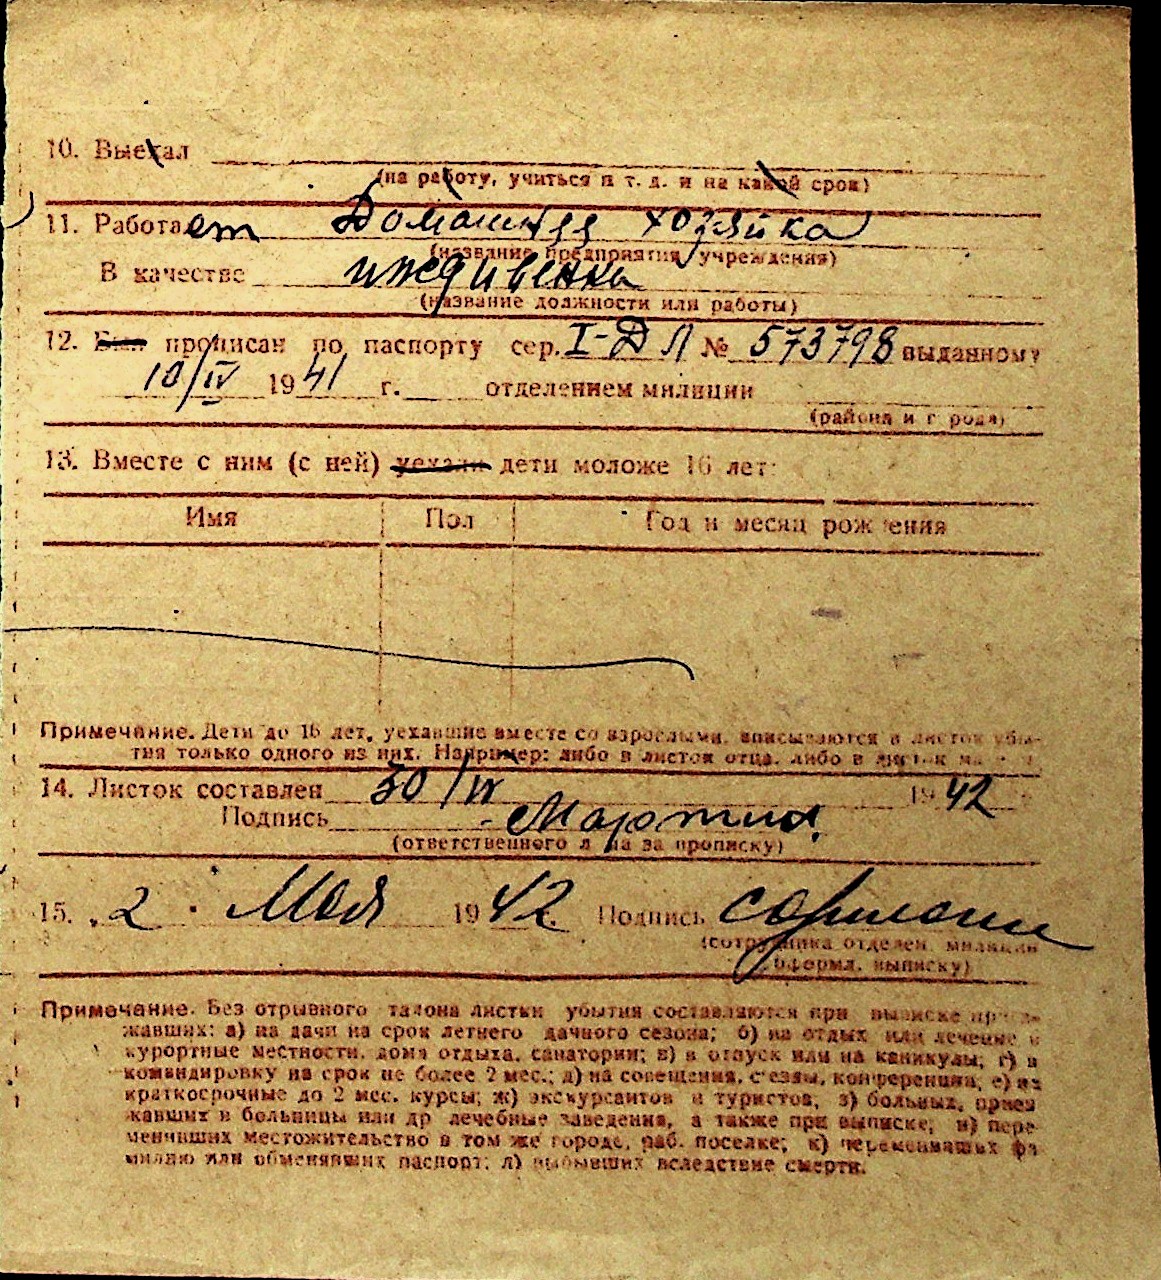 10. Выехал
(на работу, учиться и т. д. и на какой срок)
11. Работает Домашняя хозяйка
(название предприятия, учреждения)
В качестве иждивенка
(название должности или работы)
12. Был прописан по паспорту сер. I-ДЛ № 573798 выданному
10/IV 1941 г. отделением милиции
(района и города)
13. Вместе с ним (с ней) уехали дети моложе 16 лет:
Имя Пол Год и месяц рождения
Примечание. Дети до 16 лет, уехавшие вместе со взрослыми, вписываются в листок убы-
тия только одного из них. Например: либо в листок отца, либо в листок
14. Листок составлен 30/IV 1942
Подпись
(ответственного лица за прописку)
15. 2 Мая 1942 Подпись
(сотрудника отделен. милиции
оформл. выписку)
Примечание. Без отрывного талона листки убытия составляются при выписке
жавших: а) на дачи на срок летнего дачного сезона; б) на отдых или лечение в
курортные местности, дома отдыха, санатории; в) в отпуск или на каникулы; г) в
командировку на срок не более 2 мес.; д) на совещания, съезды, конференции; е) на
краткосрочные до 2 мес. курсы; ж) экскурсантов и туристов; з) больных, приез
жавших в больницы или др лечебные заведения, а также при выписке; и) пере
менивших местожительство в том же городе, раб. поселке; к) переменивших фа
милию или обменявших паспорт; л) выбывших вследствие смерти.